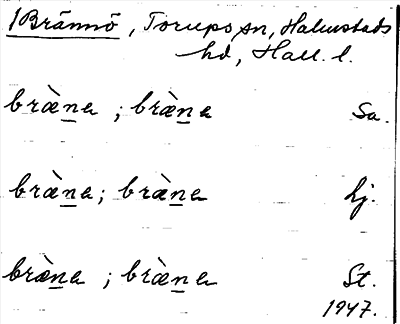 1Brännö, Torups sn, Halmstads
hd, Hall. l.
bræ̀na ; bræ̀na Sa.
bræ̀na ; bræ̀na Lj.
bræ̀na ; bræ̀na St.
1947.